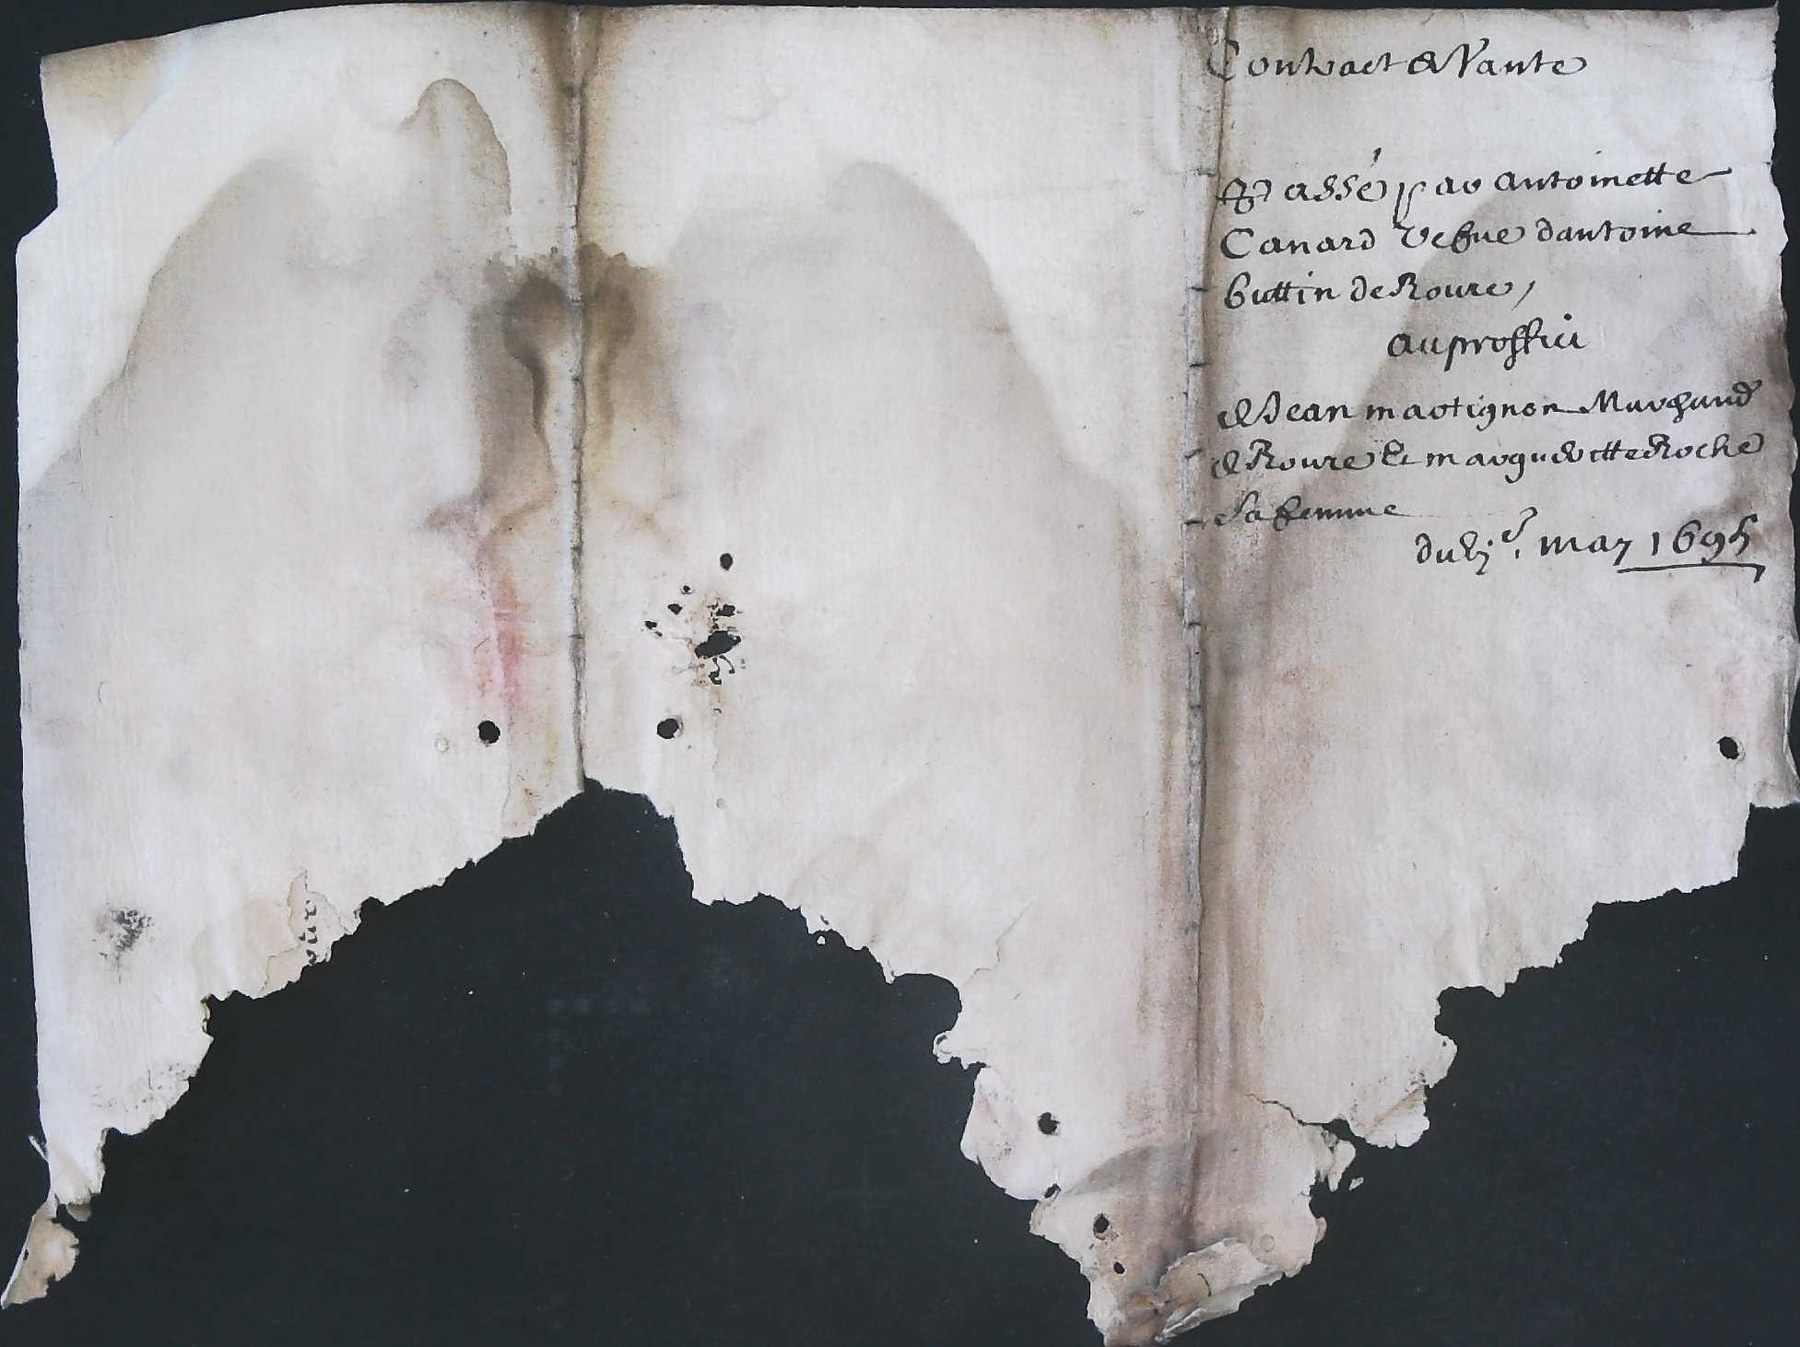 Contract de Vante
Passé par antoinette
Canard vefve dantoine
buttin de Roure,
au proffict
de Jean martignon Marchand
de Roure & margueritte Roche
sa femme
du vj.e may 1695